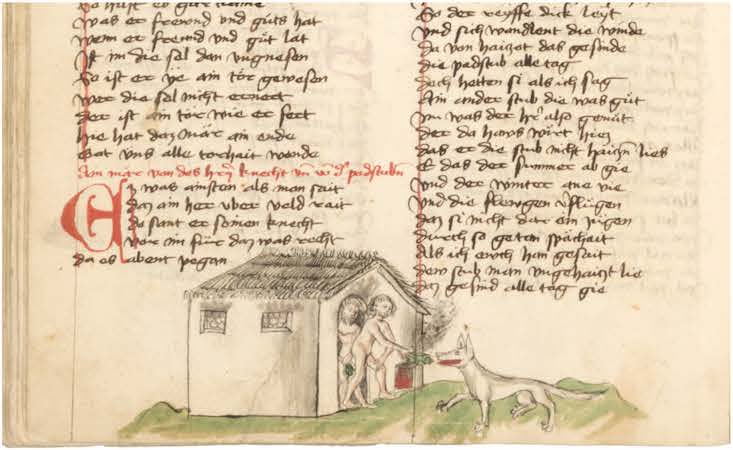 So hast er gar kaine
Was er frewnd vnd guts hat
wem er freund vnd gut lat
Ist im die sel dan vngnesen
So ist er ye ain tor gewesen
wer die sel nicht ernert
der ist ain tor wie er fert
hie hat daz mär ain ende
Got vns alle torhait wende
Ain mär von des hrn knecht vnd padstubn
Ez was ainsten als man sait
daz ain her vber veld rait
do sant er seinen knecht
vor im für daz was recht
da es abent pegan
So der reyffe dick leyt
vnd sich wandlent die winde
da von haizet das gesinde
die padstub alle tag
doch hetten si als ich sag
Ain ander stub die was gut
nu was der hr also gemut
der da haws wirt hiez
das er die stub nicht haiczn lies
E das der summer ab gie
vnd der winter ane vie
vnd die flewgen
daz si nicht dar ein
durch so getan spächait
als ich ewch han gesait
dew stub man vngehaizt lie
daz gesind alle tag gie